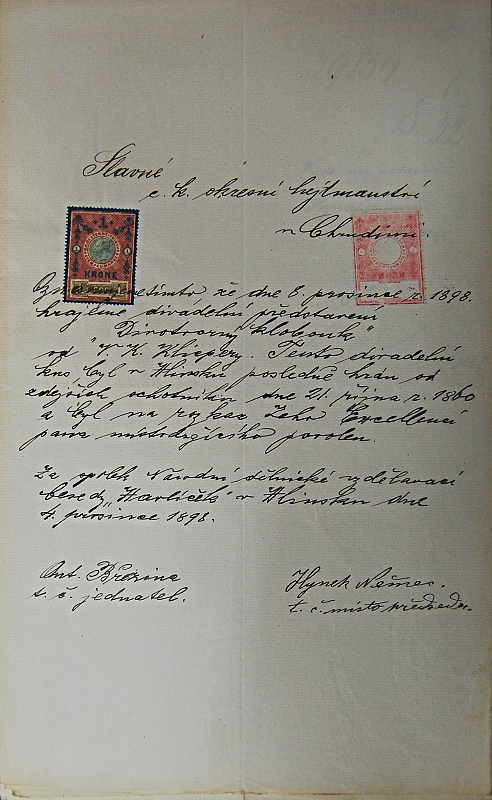 Slavné
c. k. okresní hejtmanství
v Chrudimi.
1
KRONE
že dne 8. prosince r. 1898.
hrajeme divadelní představení
"Divotvorný klobouk"
od V. K. Klicpery. Tento divadelní
kus byl v Hlinsku posledně hrán od
zdejších ochotníků dne 21. října r. 1860
a byl na rozkaz Jeho Excellencí
pana místodržícího povolen.
Za spolek Národní dělnické vzdělavací
besedy "Havlíček" v Hlinsku dne
4. prosince 1898.
Ant. Březina
t. č. jednatel.
Hynek Němec.
t. č. místopředseda.